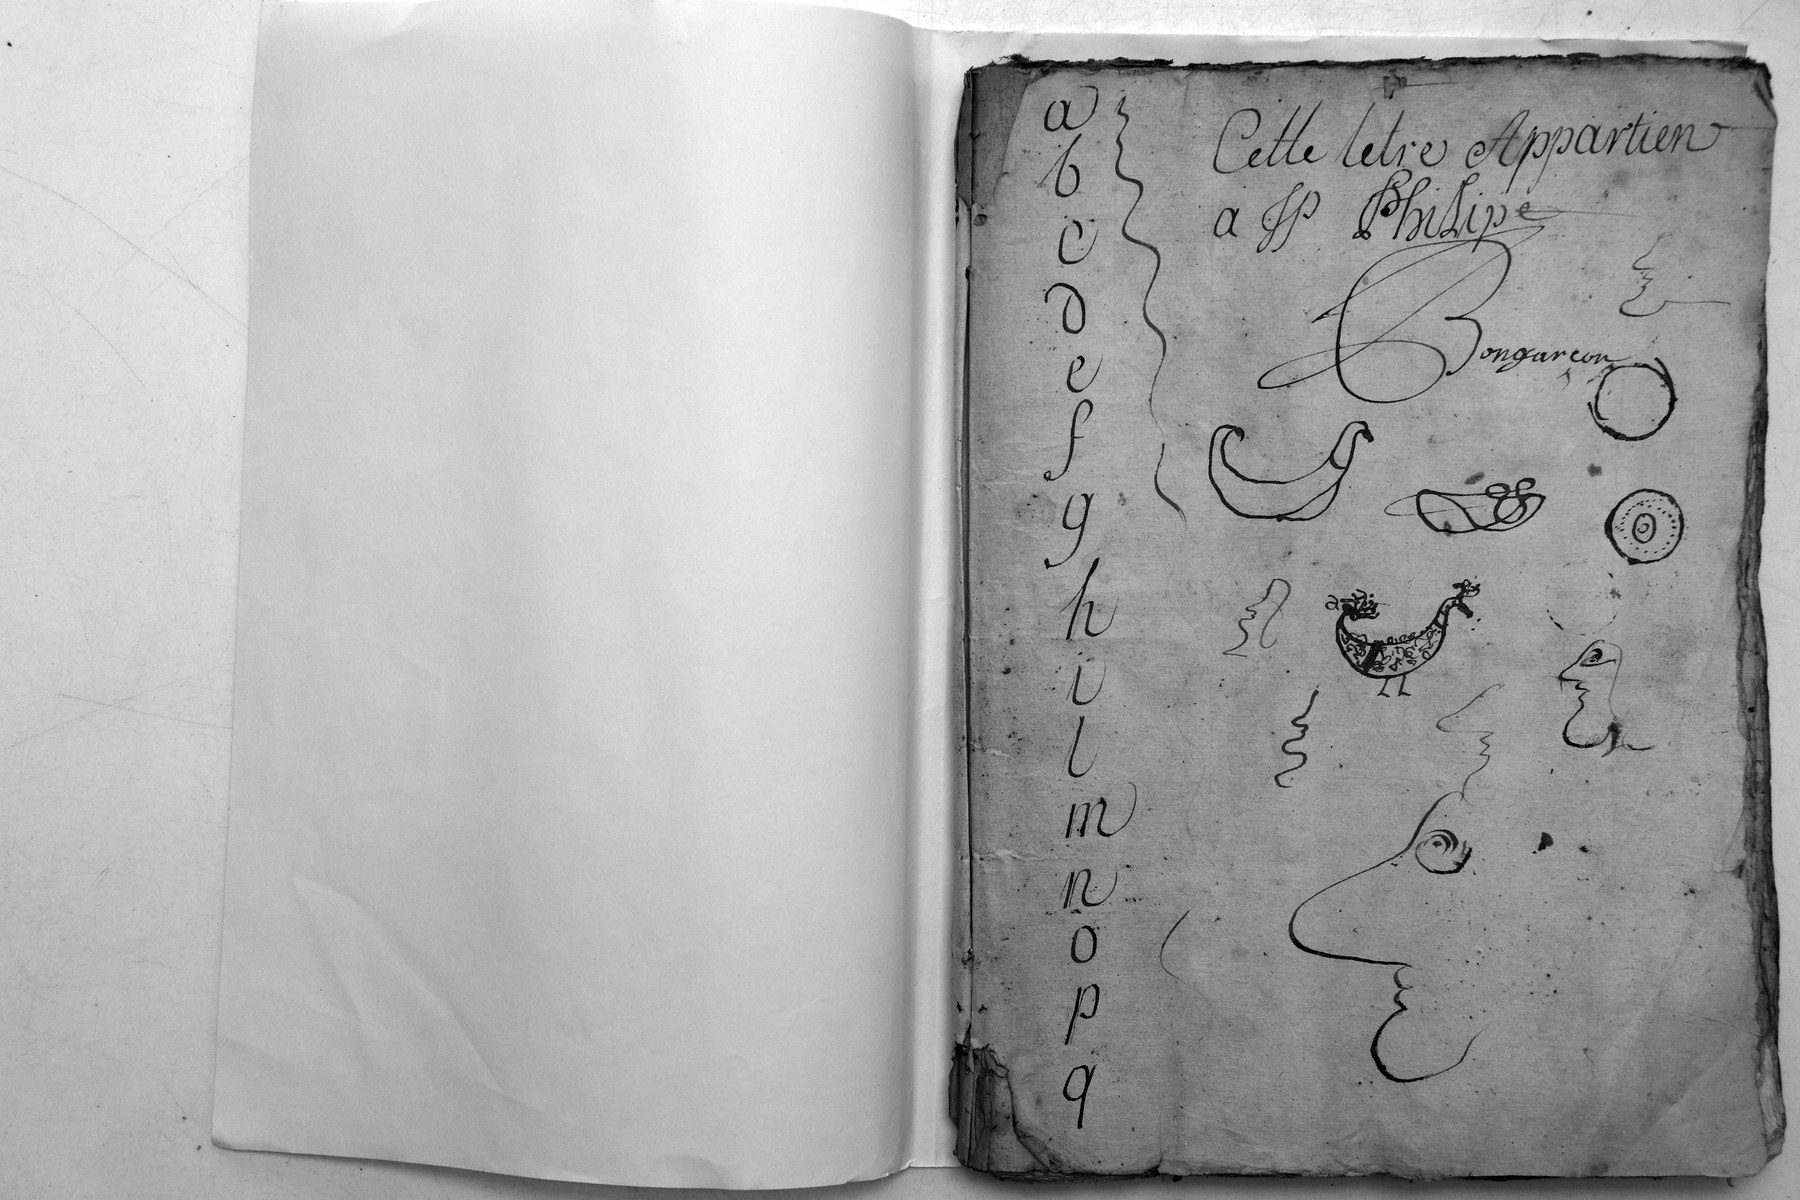 a
b
c
d
e
f
g
h
i
l
m
n
o
p
q
Cette letre Appartien
a JP Philipe
Bongarcon